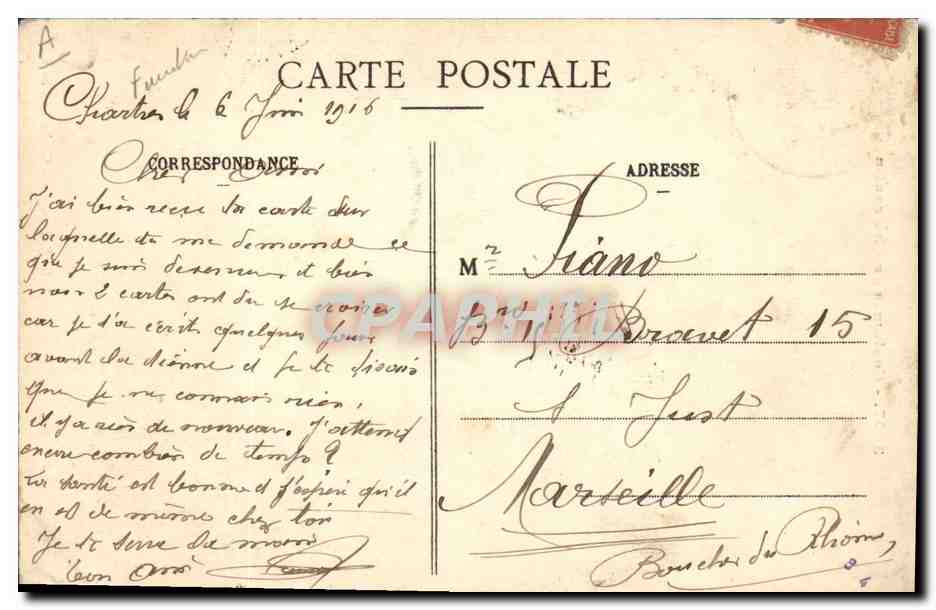 A
CARTE POSTALE
Chartres le 6 Juin 1916
CORRESPONDANCE
Cher Ami
J'ai bien reçu ta carte sur
laquelle tu me demande ce
que je suis devenu et bien
nos 2 cartes ont du se croiser
car je t'ai écrit quelques jours
avant la tienne et je te disais
que je ne connais rien,
il y a rien de nouveau. J'attend
encore combien de temps ?
La santé est bonne et j'espère qu'il
en est de même chez toi
Je te serre la main
Ton ami
ADRESSE
Mr Piano
Bravet 15
St Just
Marseille
Bouches du Rhône
CPARAMA